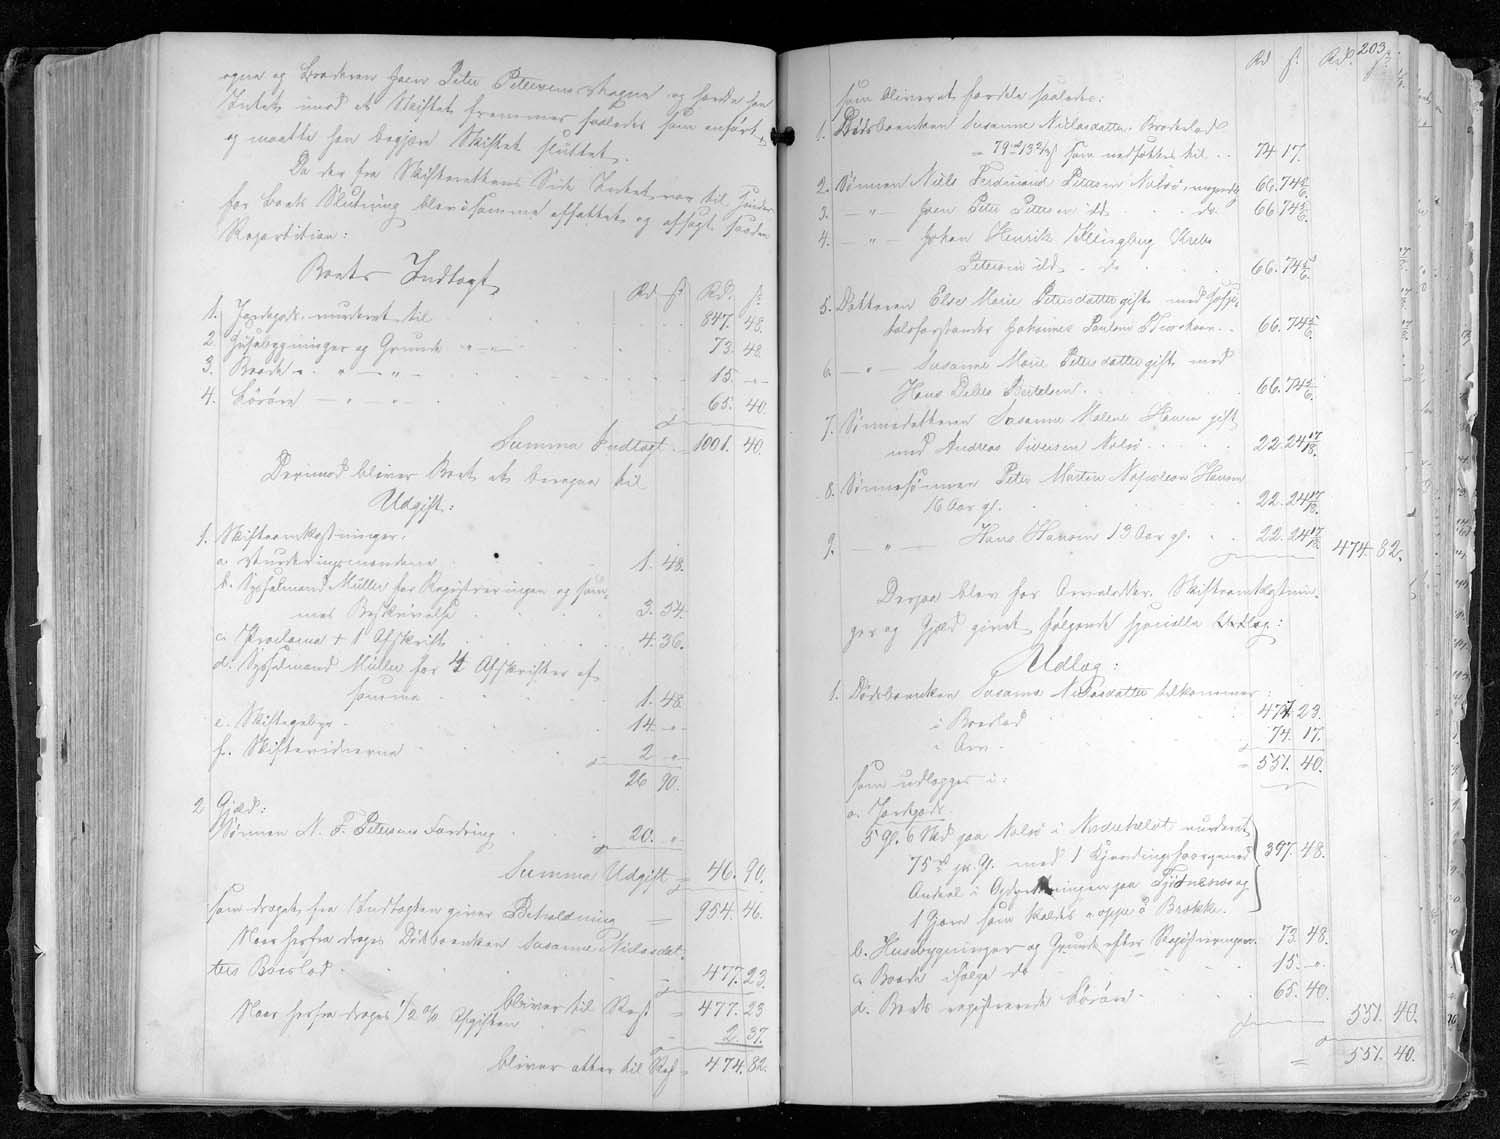 egne og Broderen Joen Peter Petersens Vegne og havde han
Intet imod at Skiftet fremmes saaledes som anført,
og maatte han begjære Skiftet sluttet.
Da der fra Skifterettens Side Intet var til Hinder
for Boets Slutning blev samme affattet og afsagt saadan
Repartition:
Boets Indtægt
Rd. ß. Rd. ß.
1. Jordegods vurderet til 847. 48.
2. Husebygninger og Grunde " — " — 73. 48.
3. Baade " — " — 15. — "
4. Løsøre — " — " — 65. 40.
Summa Indtægt = 1001. 40.
Derimod bliver Boet at beregne til
Udgift:
1. Skifteomkostninger:
a. Vurderingsmændene 1. 48.
b. Sysselmand Müller for Registreringen og sam-
mes Beskrivelse 3. 54.
c. Proclama + 1 Afskrift 4. 36.
d. Sysselmand Müller for 4 Afskrifter af
samme 1. 48.
e. Skiftegebyr 14. — "
f. Skiftevidnerne 2 — "
26 90.
2 Gjæld:
Sønnen N. F. Petersens Fordring 20. "
Summa Udgift = 46. 90.
som draget fra Indtægten giver Beholdning = 954. 46.
Naar herfra drages Dødsboenken Susanne Niclasdat-
ters Boeslod 477. 23.
bliver til Rest = 477. 23
Naar herfra drages 1/2 % Afgiften 2. 37.
bliver atter til Rest = 474. 82.
203.
Rd ß. Rd. ß.
som bliver at fordele saaledes:
1. Dødsboenken Susanne Niclasdatter Broderlod
= 79 rd 13 ß som nedsættes til 74 17.
2. Sønnen Niels Ferdinand Petersen Nolsø, myndig 66. 74 5/6
3. — " — Joen Peter Petersen ibd. do. 66 74 5/6.
4. — " — Johan Henrik Klingberg Krebs
Petersen ibd. do 66. 74 5/6.
5. Datteren Else Marie Petersdatter gift med Hospi-
talsforstander Johannes Poulsen Thorshavn. 66. 74 5/6.
6 — " — Susanne Marie Petersdatter gift med
Hans Debes Bertelsen. 66. 74 5/6.
7. Sønnedatteren Susanne Malene Hansen gift
med Andreas Sivertsen Nolsø 22. 24 17/18.
8. Sønnesønnen Peter Martin Napoleon Hansen
16 Aar gl. 22. 24 17/18.
9. — " — Hans Hansen 13 Aar gl. 22. 24 17/18. 474. 82.
Derpaa blev for Arvelodder, Skifteomkostnin-
ger og Gjæld givet følgende specielle Udlæg:
Udlæg:
1. Dødsboenken Susanne Niclasdatter tilkommer:
i Boeslod 477. 23.
i Arv. 74. 17.
= 551. 40.
som udlægges i:
a. Jordegods
5 Gl. 6 Skd paa Nolsø i vurderet
75 rd pr. Gl. med 1 397. 48.
Andel i paa og
1 som kaldes oppe á Brække.
b. Husebygninger og Grund efter Registreringen. 73. 48.
c. Baade ifølge do 15. — "
d. Boets registrerede Løsøre 65. 40.
551. 40.
= 551. 40.